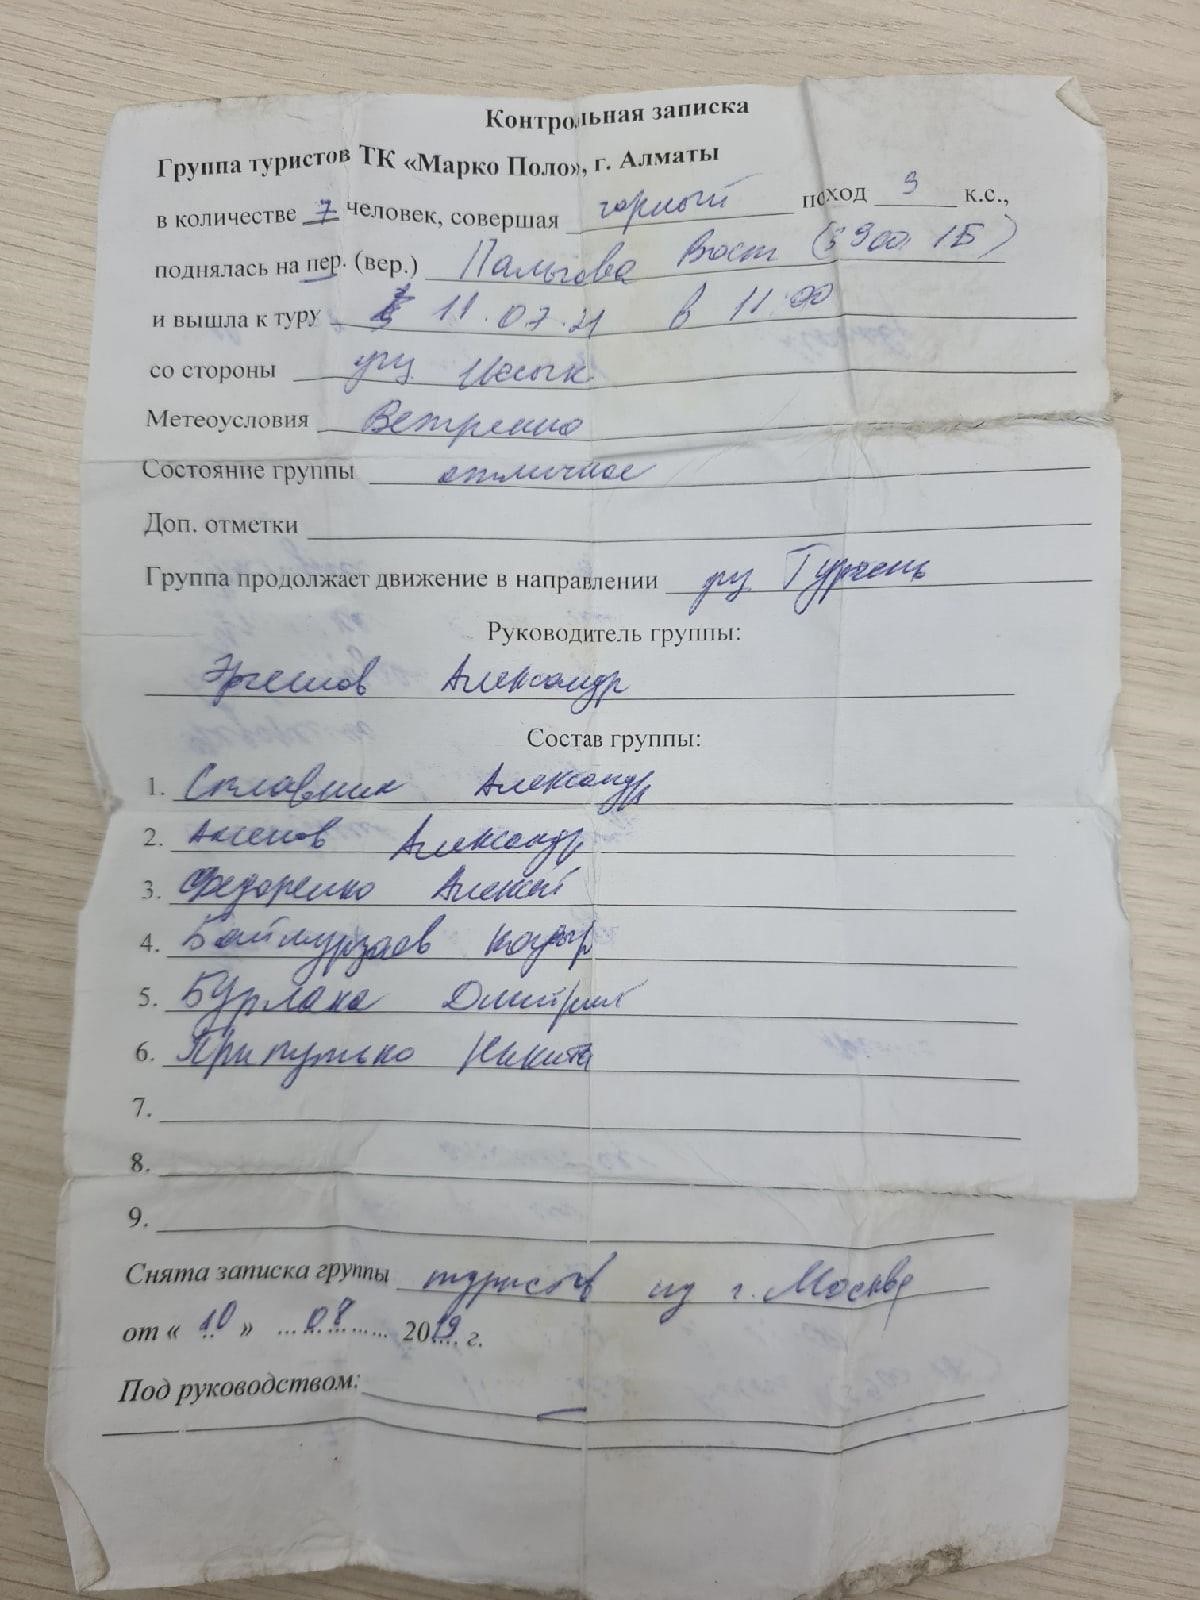 Контрольная записка
Группа туристов ТК «Марко Поло», г. Алматы
в количестве 7 человек, совершая горный поход 3 к.с.,
поднялась на пер. (вер.) Пальгова Вост (3900, 1Б)
и вышла к туру 11.07.21 в 11:00
со стороны ущ Иссык
Метеоусловия Ветренно
Состояние группы отличное
Доп. отметки
Группа продолжает движение в направлении ущ Тургень
Руководитель группы:
Эргешов Александр
Состав группы:
1. Сплавник Александр
2. Аксенов Александр
3. Федоренко Алексей
4. Баймурзаев Кадыр
5. Бурлака Дмитрий
6. Припутько Никита
7.
8.
9.
Снята записка группы туристов из г. Москва
от « 10 » 08 2019 г.
Под руководством: